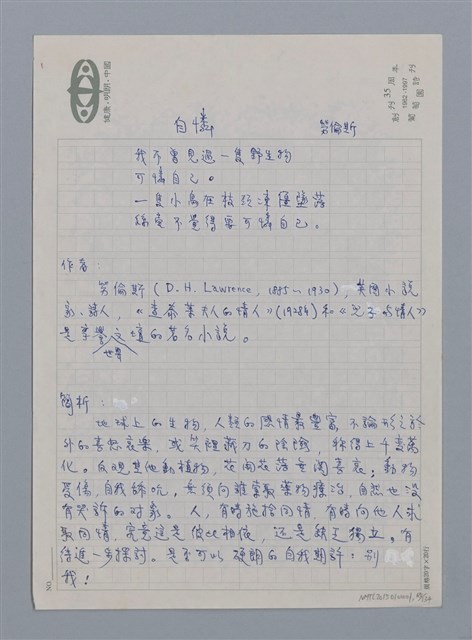 健康・明朗・中國
創刊35周年
1962-1997
葡萄園詩刊
自憐
勞倫斯
我不曾見過一隻野生物
可憐自己。
一隻小鳥從枝頭凍僵墜落
絲毫不覺得要可憐自己。
作者:
勞倫斯(D.H. Lawrence, 1885~1930),英國小說
家、詩人,《查泰萊夫人的情人》(1928年)和《兒子的情人》
是享譽文壇的著名小說。
世界
簡析:
地球上的生物,人類的感情最豐富,不論形之於
外的喜怒哀樂,或笑裡藏刀的陰險,稱得上千變萬
化。反觀其他動植物,花開花落無關喜哀;動物
受傷,自我舔吮,無須向誰索取藥物療治,自然也沒
有哭訴的對象。人,有時施捨同情,有時向他人求
取同情,究竟這是彼此相依,還是缺乏獨立。有
待進一步探討。是否可以硬朗的自我期許:別
我!
NO.